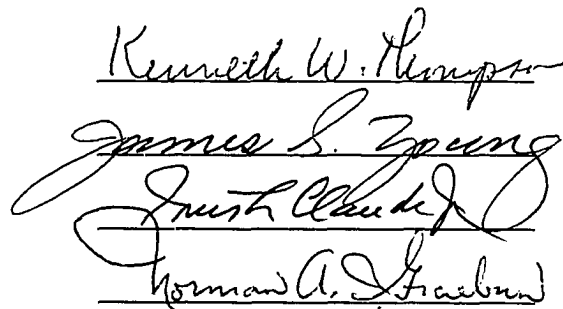 Kenneth W. Thompson
James S. Young
Inis L. Claude Jr.
Norman A. Graebner